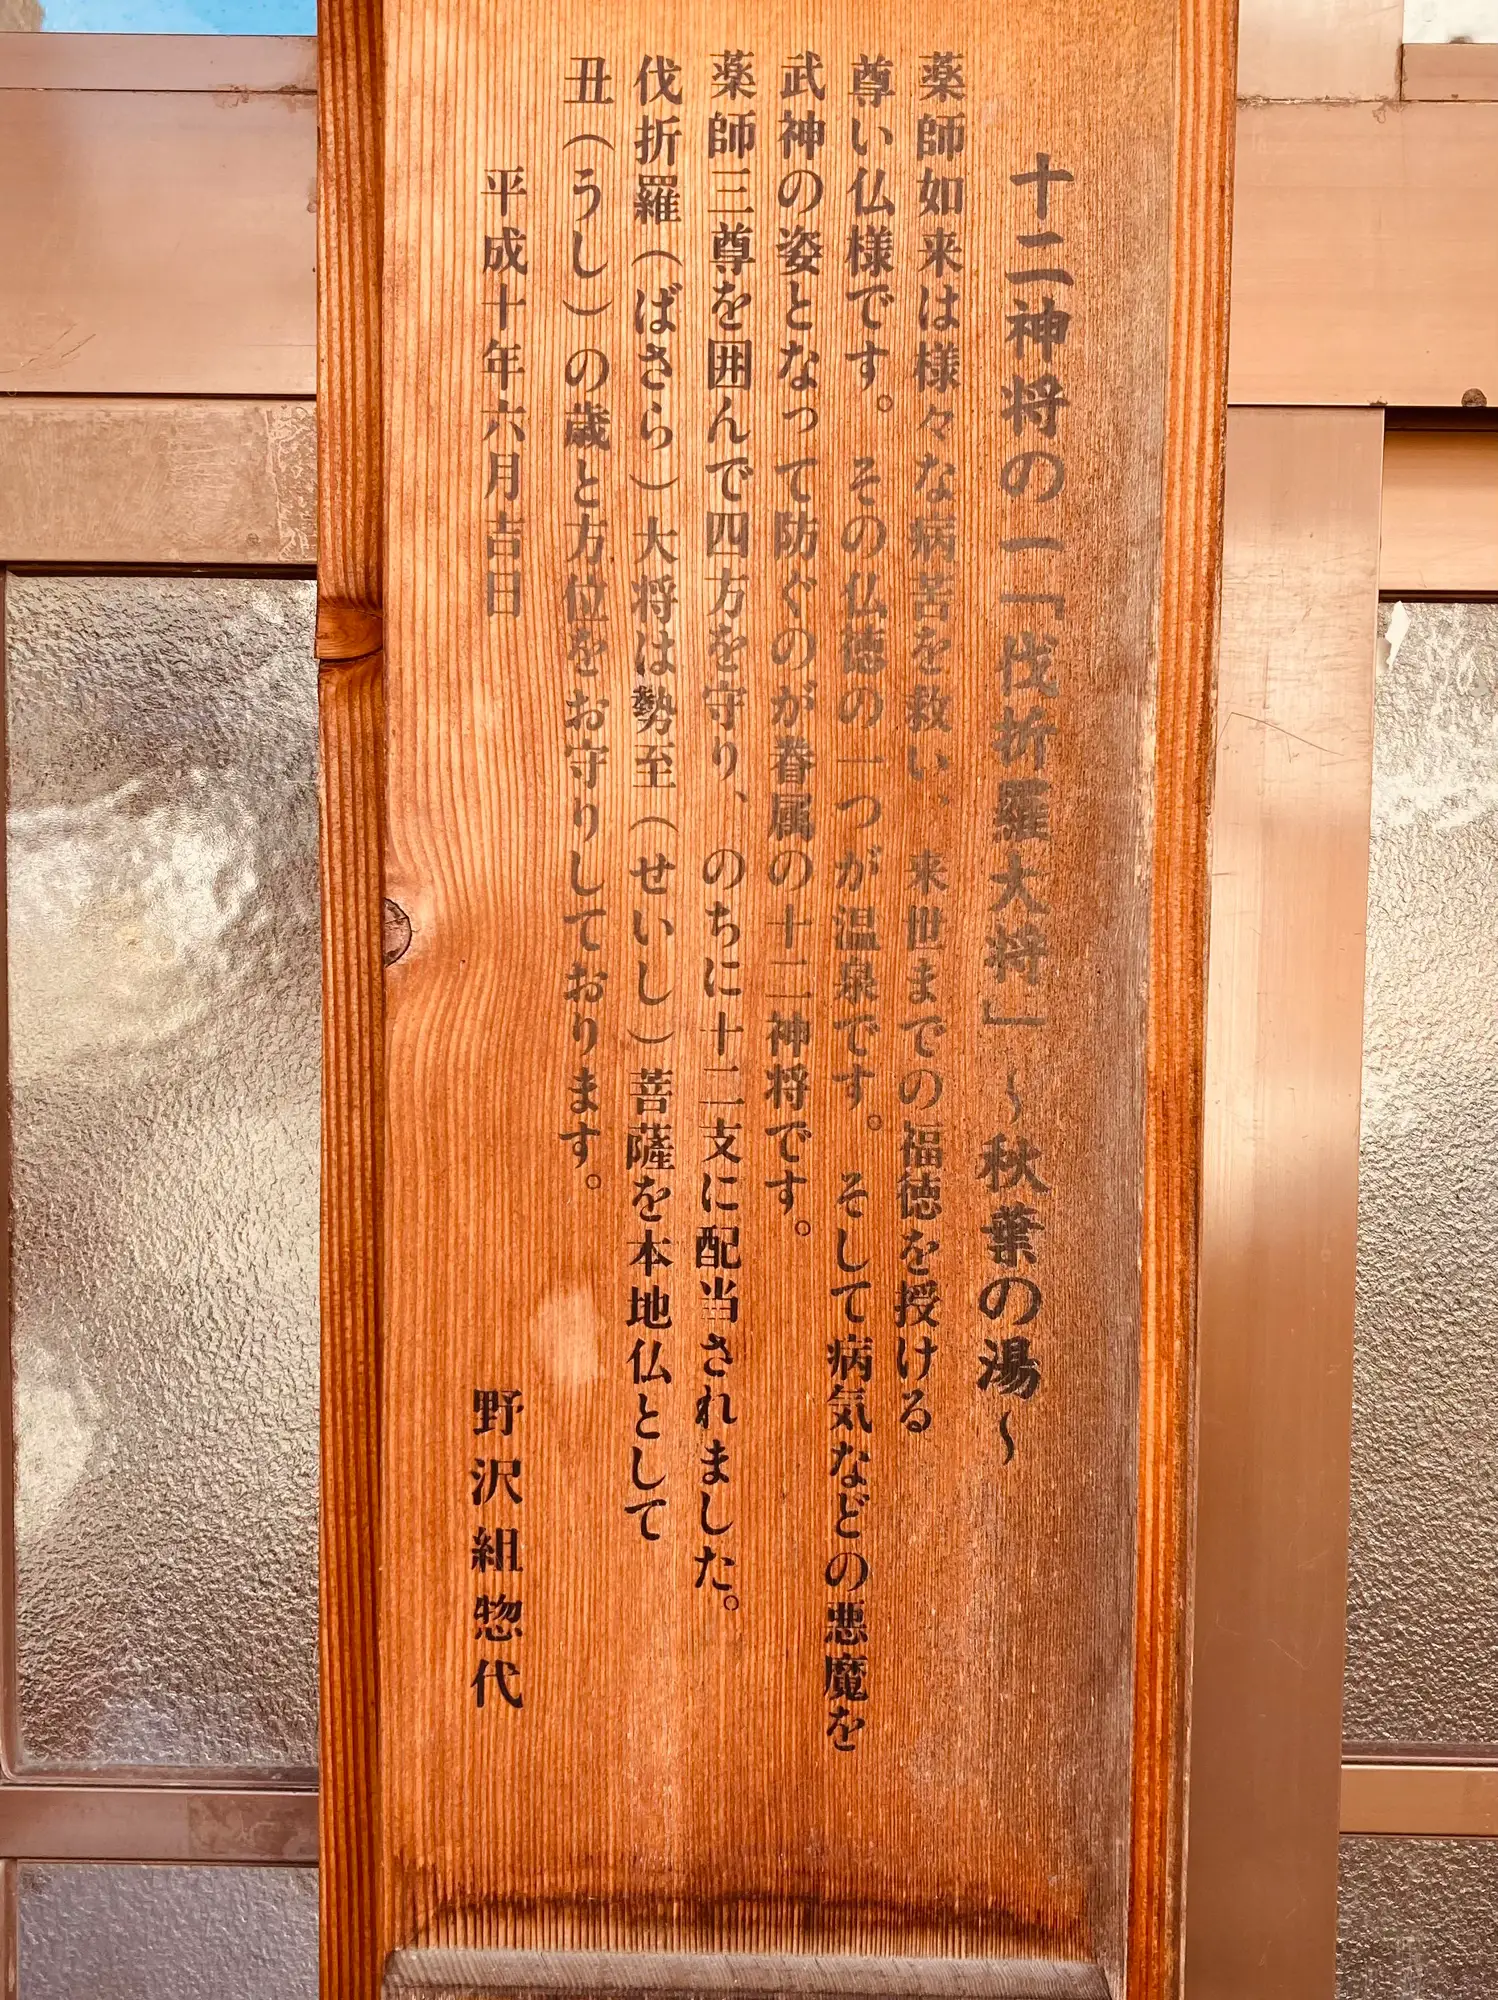 十二神将の一「伐折羅大将」～秋葉の湯～
薬師如来は様々な病苦を救い、来世までの福徳を授ける
尊い仏様です。その仏徳の一つが温泉です。そして病気などの悪魔を
武神の姿となって防ぐのが眷属の十二神将です。
薬師三尊を囲んで四方を守り、のちに十二支に配当されました。
伐折羅（ばさら）大将は勢至（せいし）菩薩を本地仏として
丑（うし）の歳と方位をお守りしております。
平成十年六月吉日
野沢組惣代